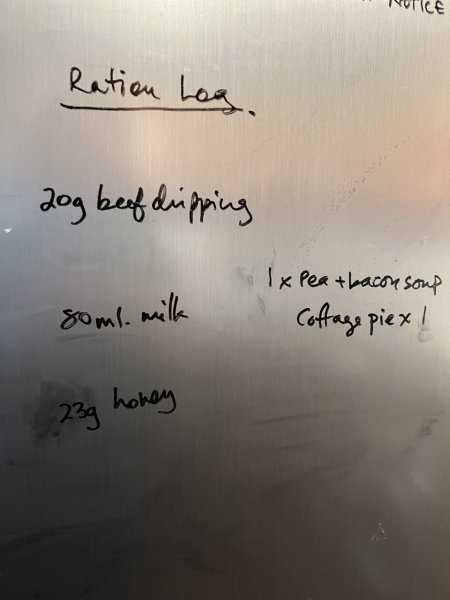 NOTICE
Ration Log.
20g beef dripping
1 x Pea + bacon soup
Cottage pie x 1
80ml. milk
23g honey